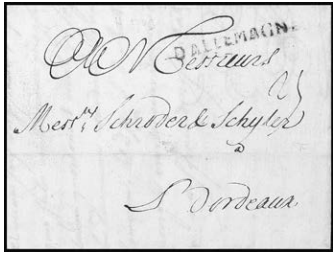 D'ALLEMAGNE
A Messieurs
Mess.rs Schröder & Schyler
à
Bordeaux